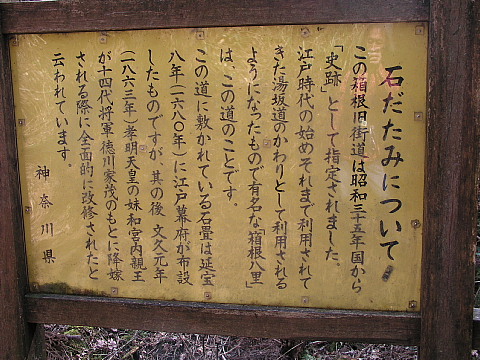 石だたみについて
この箱根旧街道は昭和三十五年国から
「史跡」として指定されました。
江戸時代の始めそれまで利用されて
きた湯坂道のかわりとして利用される
ようになったもので有名な「箱根八里」
は、この道のことです。
この道に敷かれている石畳は延宝
八年(一六八〇年)に江戸幕府が布設
したものですが、其の後 文久元年
(一八六三年)孝明天皇の妹和宮内親王
が十四代将軍徳川家茂のもとに降嫁
される際に全面的に改修されたと
云われています。
神奈川県